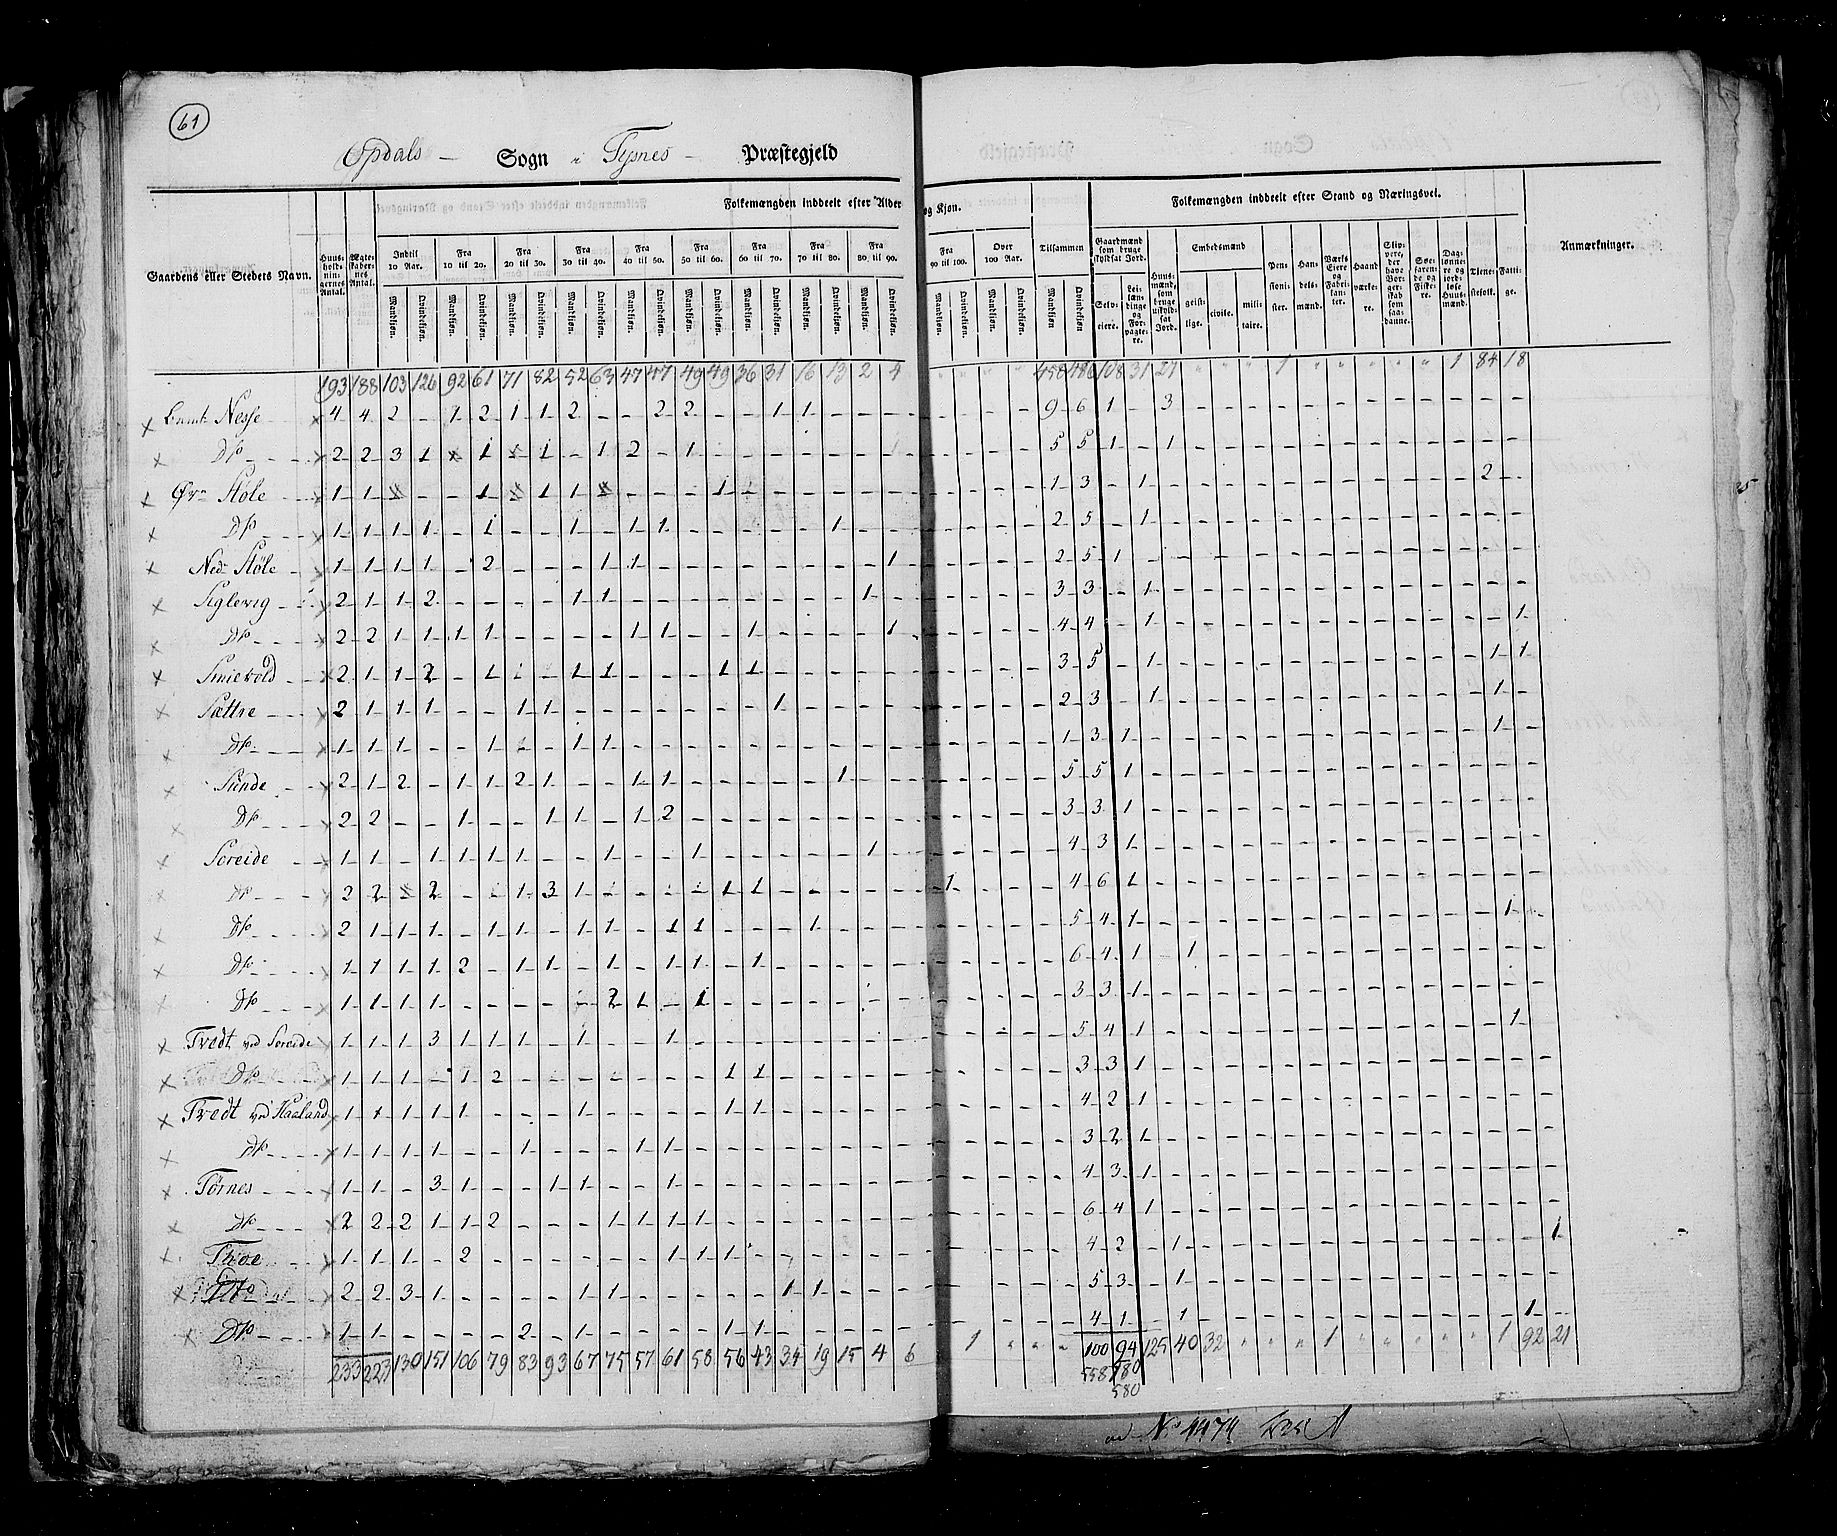 61
Opdals – Sogn i Tysnes – Præstegjeld
Gaardens eller Stedets Navn.
Huusholdningernes Antal.
Ægteskabernes Antal.
Folkemængden inddeelt efter Alder og Kjøn.
Indtil 10 Aar.
Fra 10 til 20.
Fra 20 til 30.
Fra 30 til 40.
Fra 40 til 50.
Fra 50 til 60.
Fra 60 til 70.
Fra 70 til 80.
Fra 80 til 90.
Fra 90 til 100.
Over 100 Aar.
Tilsammen
Mandkjøn. Qvindekjøn.
Folkemængden inddeelt efter Stand og Næringsvei.
Gaardmænd som bruge skyldsat Jord.
Selveiere.
Leilændinge og Forpagtere.
Huusmænd, som bruge uskyldsat Jord.
Embedsmænd
geistlige. civile. militaire.
Pensionister.
Handelsmænd.
Værks Eiere og Fabrikanter.
Haandværkere.
Søefarende og Fiskere.
Daglønnere og jordløse Huusmænd.
Tjenestefolk.
Fattige.
Anmærkninger.
193 188 103 126 92 61 71 82 52 63 47 47 49 49 36 31 16 13 2 4 " " " " 458 486 108 31 27 " " " 1 " " " " " 1 84 18
Nesse 4 4 2 – 1 2 1 1 2 – – 2 2 – – 1 1 – – – – – – – 9 6 1 – 3
Do 2 2 3 1 x 1 1 – 1 2 – 1 – 5 5 1 – 1
Øvre Støle 1 1 – – 1 1 1 – – – 1 – 1 3 – 1 – 2 –
Do 1 1 1 1 – 1 – – 1 – 1 1 – – – – – 1 – – 2 5 – 1
Ned Støle 1 1 1 1 – 2 – – – 1 1 – – – – – – – – 1 2 5 1
Siglevig 2 1 1 2 – – – – 1 1 – – – – – – – – 1 – 3 3 – 1
Do 2 2 1 1 1 1 – – – – 1 1 – – 1 – – – – 1 4 4 – 1 – 1
Smievold 2 1 1 2 – 1 – 1 1 – – – 1 1 – 3 5 – 1 – 1 1
Sættre 2 1 1 1 – – 1 1 – – – – – – – 1 – – – – 2 3 – 1 – 1 –
Do 1 1 1 – – 1 – 1 1 – 1 3 1 – 1 –
Sunde 2 1 2 – 1 1 2 1 – – 1 1 – – – – – 1 – – 5 5 1
Do 2 2 – – 1 – – 1 1 – 1 2 – 3 3 1
Soreide 1 1 – 1 1 1 1 – – 1 – – 1 – – – – – 1 – 4 3 1
Do 2 2 2 – 1 3 1 – 1 1 – 1 – 4 6 1
Do 2 1 1 1 – 1 1 – 1 1 – 1 1 – – – 1 – – – 5 4 1 – 1 –
Do 1 1 1 1 2 – 1 1 – 1 – 1 1 – 1 – 6 4 1 – 1
Do 1 1 1 1 – – – – – 2 1 – 1 – 3 3 1
Tvedt ved Soreide 1 1 1 3 1 1 1 – 1 – – 1 – 5 4 1 – 1 –
Do 1 1 1 – 1 2 – – – – 1 1 – 3 3 1
Tvedt ved Haaland 1 1 1 1 1 – – – 1 – – – – 1 1 – 4 2 1
Do 1 1 1 1 – – 1 – – – 1 1 – 3 2 1
Tørnes 1 1 – 3 1 – – 1 1 – – 1 – 4 3 1
Do 2 2 2 1 1 2 – – – 1 1 1 1 – 6 4 1
Thoe 1 1 1 – 2 – – – – – – 1 1 1 – 4 2 – 1 – 1
2 2 3 1 – – – – 1 1 – – – – – 1 1 – – – 5 3 – 1
Do 1 1 – – – – 2 – 1 – – – – 1 1 – 4 1 – 1 – 1 –
233 223 130 151 106 79 83 93 67 75 57 61 58 56 43 34 19 15 4 6 1 " " " 100 94 125 40 32 " " " 1 " " " " " 1 92 21
558 580
580
No 1474